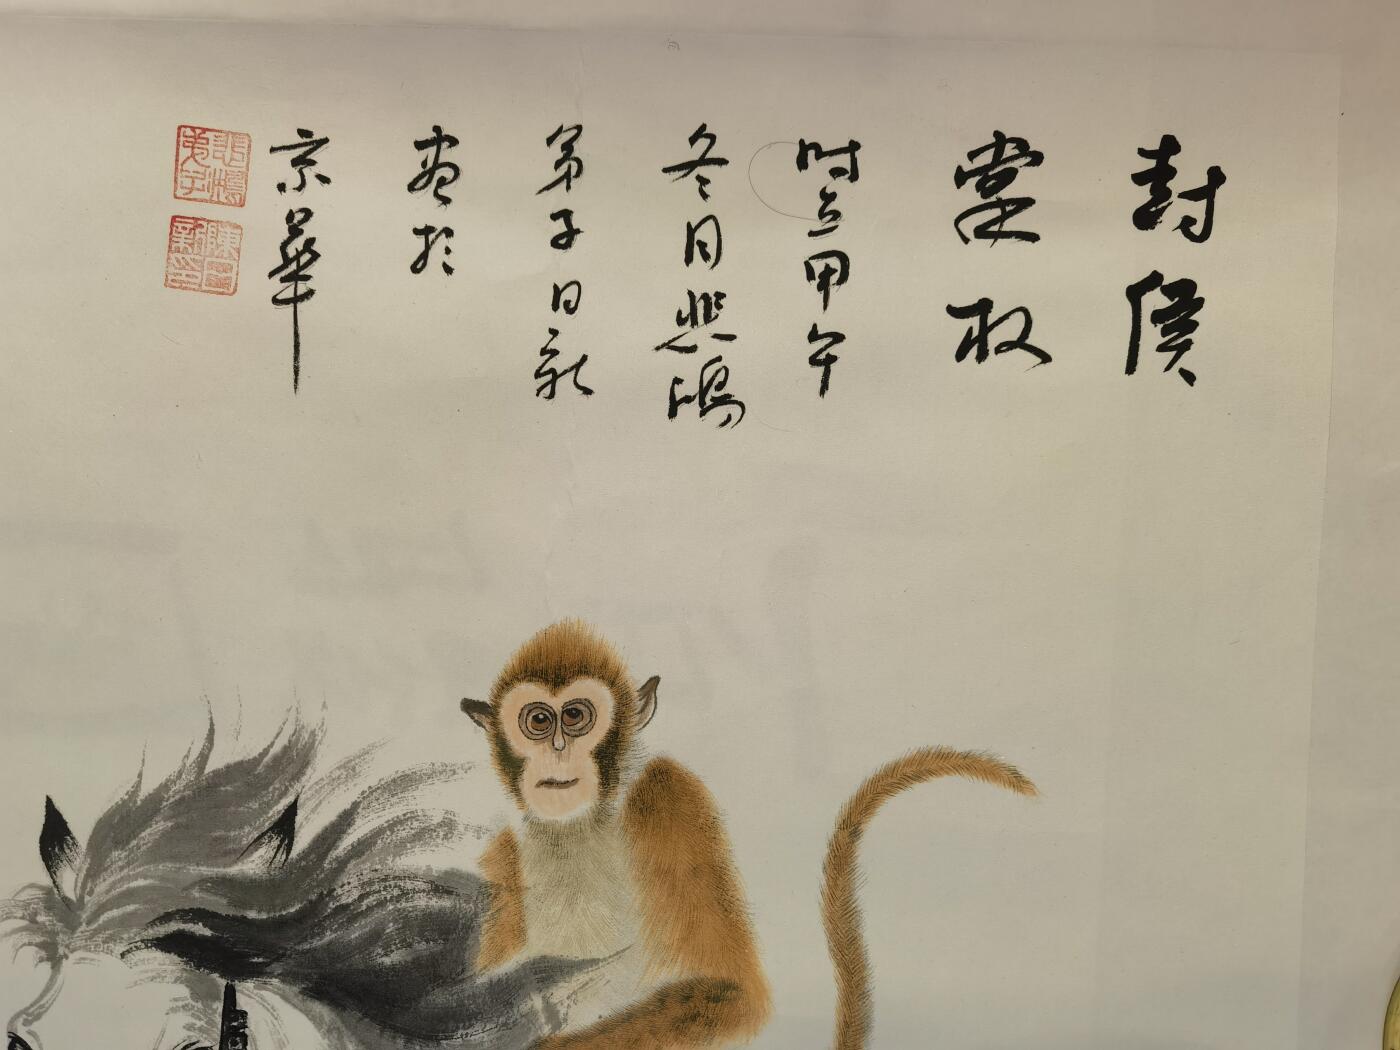 封侯
掌权
时立甲午
冬月悲鴻
弟子日新
畫於
京華
悲鴻弟子
陳日新印